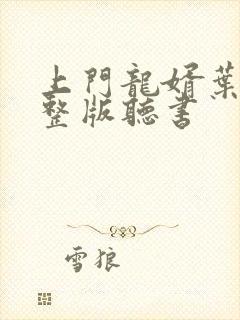 上門龍婿葉
整版聽書
雪狼